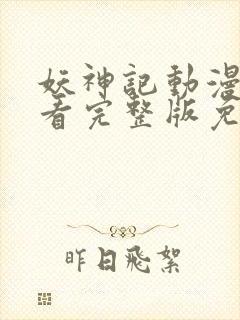 妖神記動漫
看完整版免
昨日飛絮